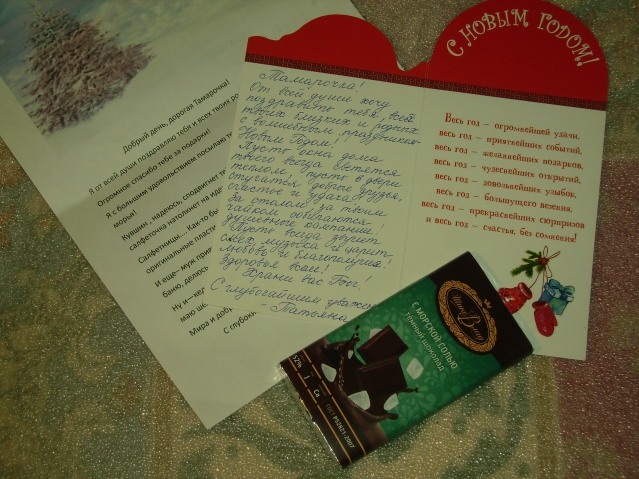 Добрый день, дорогая Тамарочка!
Я от всей души поздравляю тебя и всех твоих ро
Огромное спасибо тебе за подарки!
Я с большим удовольствием посылаю т
морья!
Кувшин, надеюсь, сподвигнет т
салфеточка натолкнет на иде
Салфетницы... Как-то бы
оригинальные пласти
И еще- муж при
баню, делюсь
Ну и—ке
маю ше
Мира и добр
С глубок
Тамарочка!
От всей души хочу
поздравить тебя, всех
твоих близких и родных
с волшебным праздником
Новым Годом!
Пусть окна дома
твоего всегда светятся
теплом, пусть в двери
стучатся добрые друзья,
счастье и удача!
За столом за твоим
чайком собираются
душевные кампании!
Пусть всегда звучит
смех, музыка и царит
любовь и благополучие!
Здоровья всем!
Храни вас Бог!
С глубочайшим уважен
- Татьяна
С НОВЫМ ГОДОМ!
Весь год – огромнейшей удачи,
весь год – приятнейших событий,
весь год – желаннейших подарков,
весь год – чудеснейших открытий,
весь год – довольнейших улыбок,
весь год – большущего везения,
весь год – прекраснейших сюрпризов
и весь год – счастья, без сомнения!
С МОРСКОЙ СОЛЬЮ
ТЁМНЫЙ ШОКОЛАД
52%